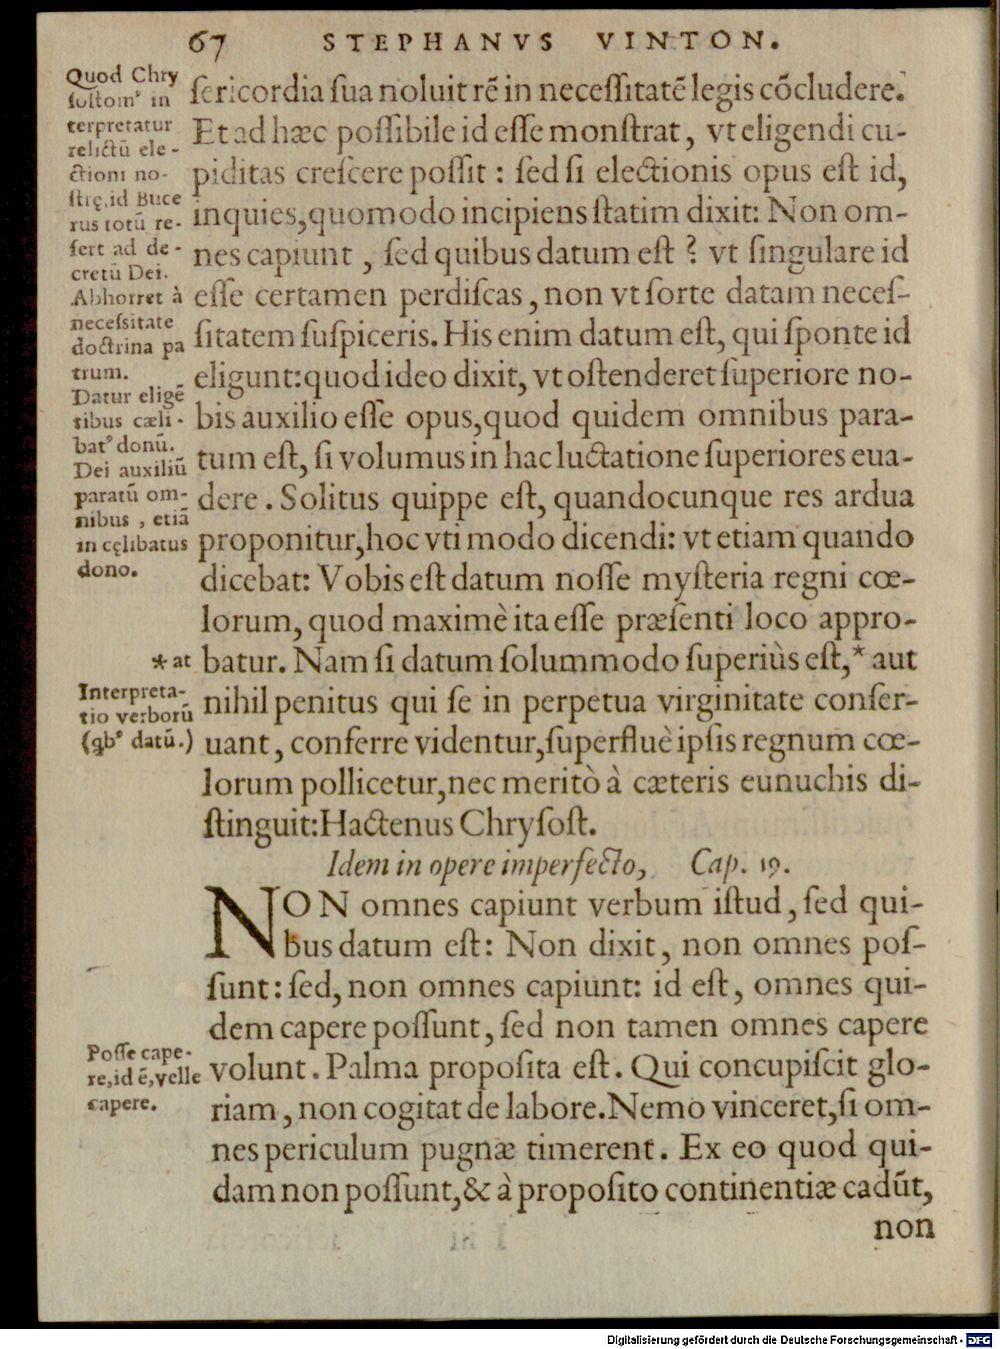 67 STEPHANVS VINTON.
Quod Chry
ſoſtomꝰ in
terpretatur
relictū ele-
ctioni no-
ſtrę, id Buce
rus totū re-
fert ad de-
cretū Dei.
Abhorret à
neceſsitate
doctrina pa
trum.
Datur eligē
tibus cæli-
batꝰ donū.
Dei auxiliū
paratū om-
nibus, etiā
in cęlibatus
dono.
*at
Interpreta-
tio verborū
(qbꝰ datū.)
Poſſe cape-
re, id ē, velle
capere.
ſericordia ſua noluit rē in neceſſitatē legis cōcludere.
Et ad hæc poſſibile id eſſe monſtrat, vt eligendi cu-
piditas creſcere poſſit : ſed ſi electionis opus eſt id,
inquies, quomodo incipiens ſtatim dixit: Non om-
nes capiunt, ſed quibus datum eſt ? vt ſingulare id
eſſe certamen perdiſcas, non vt ſorte datam neceſ-
ſitatem ſuſpiceris. His enim datum eſt, qui ſponte id
eligunt: quod ideo dixit, vt oſtenderet ſuperiore no-
bis auxilio eſſe opus, quod quidem omnibus para-
tum eſt, ſi volumus in hac luctatione ſuperiores eua-
dere. Solitus quippe eſt, quandocunque res ardua
proponitur, hoc vti modo dicendi: vt etiam quando
dicebat: Vobis eſt datum noſſe myſteria regni cœ-
lorum, quod maximè ita eſſe præſenti loco appro-
batur. Nam ſi datum ſolummodo ſuperiùs eſt,* aut
nihil penitus qui ſe in perpetua virginitate conſer-
uant, conferre videntur, ſuperfluè ipſis regnum cœ-
lorum pollicetur, nec meritò à cæteris eunuchis di-
ſtinguit: Hactenus Chryſoſt.
Idem in opere imperfecto, Cap. 19.
NON omnes capiunt verbum iſtud, ſed qui-
bus datum eſt: Non dixit, non omnes poſ-
ſunt: ſed, non omnes capiunt: id eſt, omnes qui-
dem capere poſſunt, ſed non tamen omnes capere
volunt. Palma propoſita eſt. Qui concupiſcit glo-
riam, non cogitat de labore. Nemo vinceret, ſi om-
nes periculum pugnæ timerent. Ex eo quod qui-
dam non poſſunt, & à propoſito continentiæ cadūt,
non
Digitalisierung gefördert durch die Deutsche Forschungsgemeinschaft - DFG